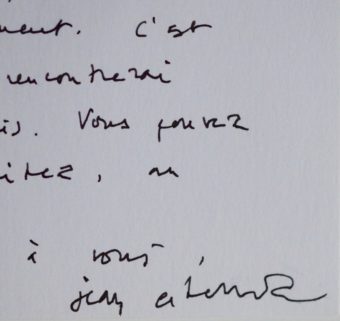 ment. C'est
rencontrerai
is. Vous pouvez
itez, au
à vous,
jean